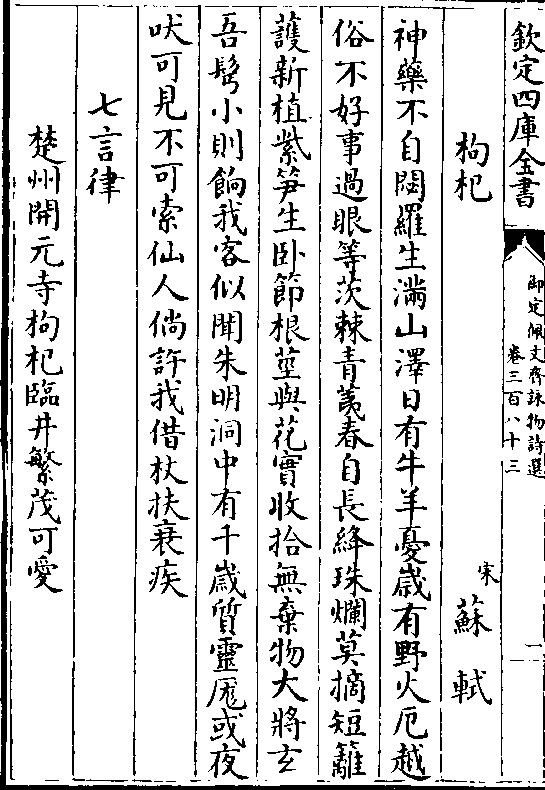 欽定四庫全書
御定佩文齊詠物詩選
卷三百八十三
二
枸杞
宋
蘇軾
神藥不自閟羅生滿山澤日有牛羊憂嵗有野火厄越
俗不好事過眼等茨棘青荑春自長絳珠爛莫摘短籬
護新植紫笋生卧節根莖與花實收拾無棄物大將玄
吾鬂小則餉我客似聞朱明洞中有千嵗質靈厖或夜
吠可見不可索仙人倘許我借杖扶衰疾
七言律
楚州開元寺枸杞臨井繁茂可愛